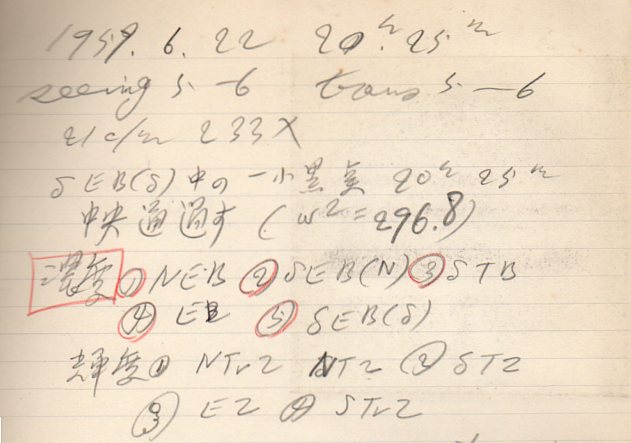 1959. 6. 22 20h. 25.m
seeing 5-6 trans 5-6
21c/m 233X
SEB(S)中の一小黒点 20h 25m
中央通過す (ω2=296.8)
濃度 ① NEB ② SEB(N) ③ STB
④ EB ⑤ SEB(S)
輝度 ① NTrZ NTZ ② STZ
③ EZ ④ STrZ